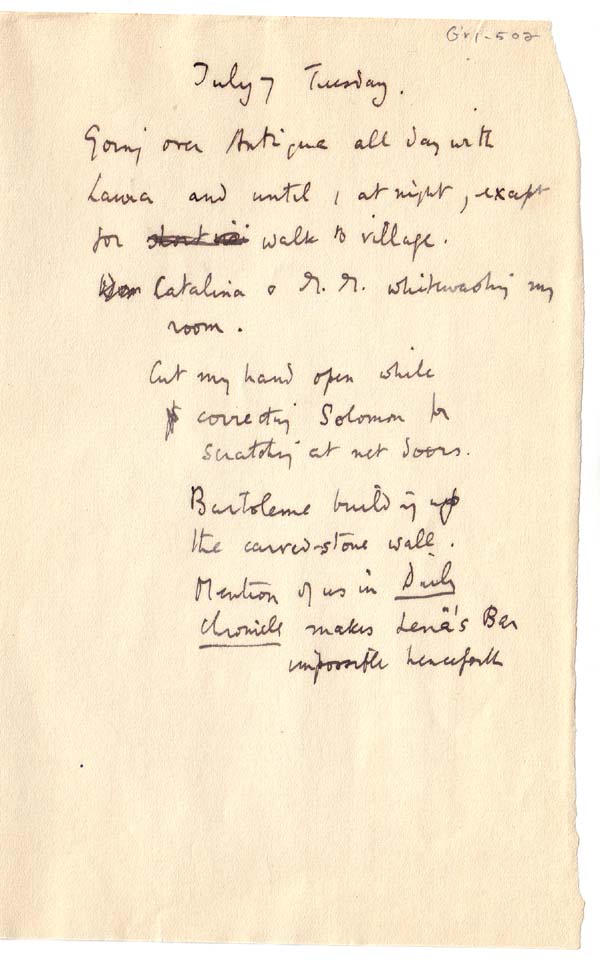 Gr1-502
July 7 Tuesday.
Going over Antigua all day with
Laura and until 1 at night, except
for walk to village.
Catalina & G. G. whitewashing my
room.
Cut my hand open while
correcting Solomon for
scratching at net doors.
Bartoleme building up
the carved-stone wall.
Mention of us in Daily
Chronicle makes Lena's Bar
impossible henceforth